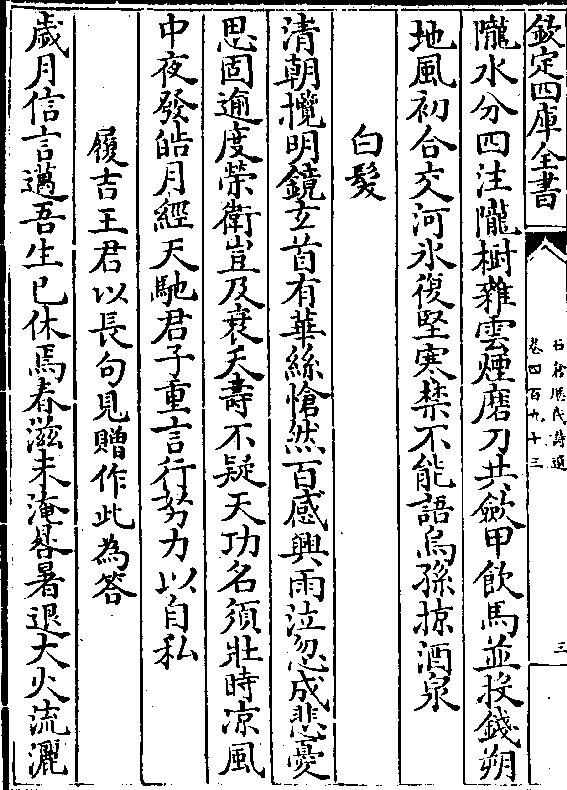 欽定四庫全書
石倉歷代詩選
卷四百九十三
三
隴水分四注隴樹雜雲煙磨刀共斂甲飲馬並投錢朔
地風初合交河氷復堅寒禁不能語烏孫掠酒泉
白髮
清朝攬明鏡玄首有華絲愴然百感興雨泣忽成悲憂
思固逾度榮衛豈及衰夭壽不疑天功名須壯時凉風
中夜發皓月經天馳君子重言行努力以自私
履吉王君以長句見贈作此為答
歲月信言邁吾生已休焉春滋未淹晷暑退大火流灑